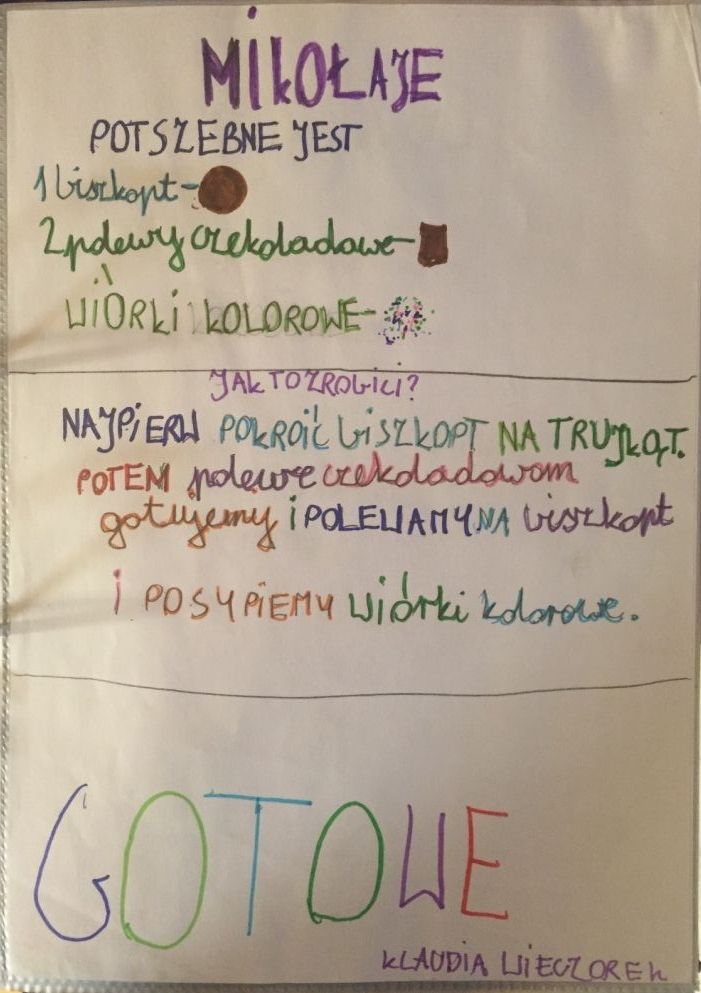 MIKOŁAJE
POTSZEBNE JEST
1 biszkopt-
2 polewy czekoladowe-
WIÓRKI KOLOROWE-
JAK TO ZROBICI?
NAJPIERW POKROIĆ biSZKOPT NA TRUJKĄT.
POTEM polewe czekoladowom
gotujemy i POLEWAMY NA biszkopt
i POSYPIEMY wiórki kolorowe.
GOTOWE
KLAUDIA WIECZOREK